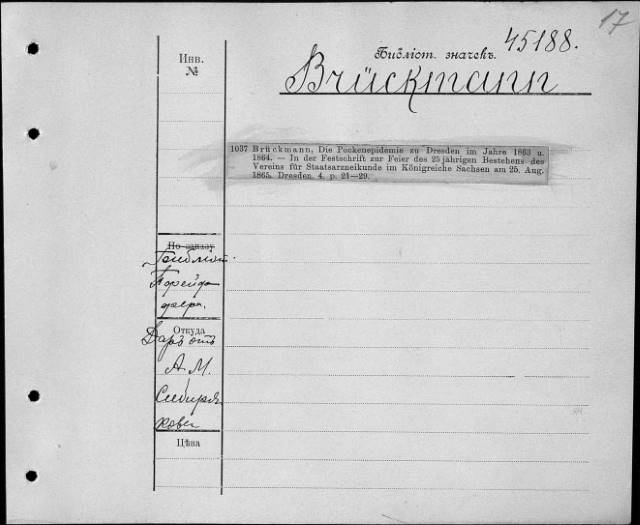 17
45188.
Библіот. значекъ.
Инв.
№
Brückmann
1037 Brückmann, Die Pockenepidemie zu Dresden im Jahre 1863 u.
1864. — In der Festschrift zur Feier des 25jährigen Bestehens des
Vereins für Staatsarzneikunde im Königreiche Sachsen am 25. Aug.
1865. Dresden. 4. p. 21—29.
По заказу
Библіот.
Порейда
Откуда
Даръ отъ
А. М.
Сибиря
кова
Цѣна